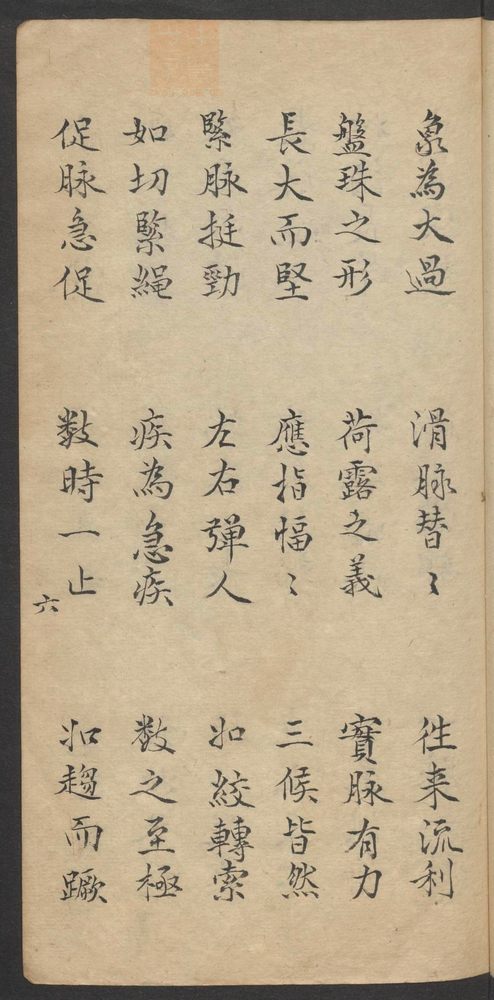 象為大過　滑脉替〻　徃来流利
盤珠之形　荷露之義　實脉有力
長大而堅　應指愊〻　三候皆然
緊脉挺勁　左右彈人　如絞轉索
如切緊繩　疾為急疾　数之至極
促脉急促　数時一止　如趨而蹶
六